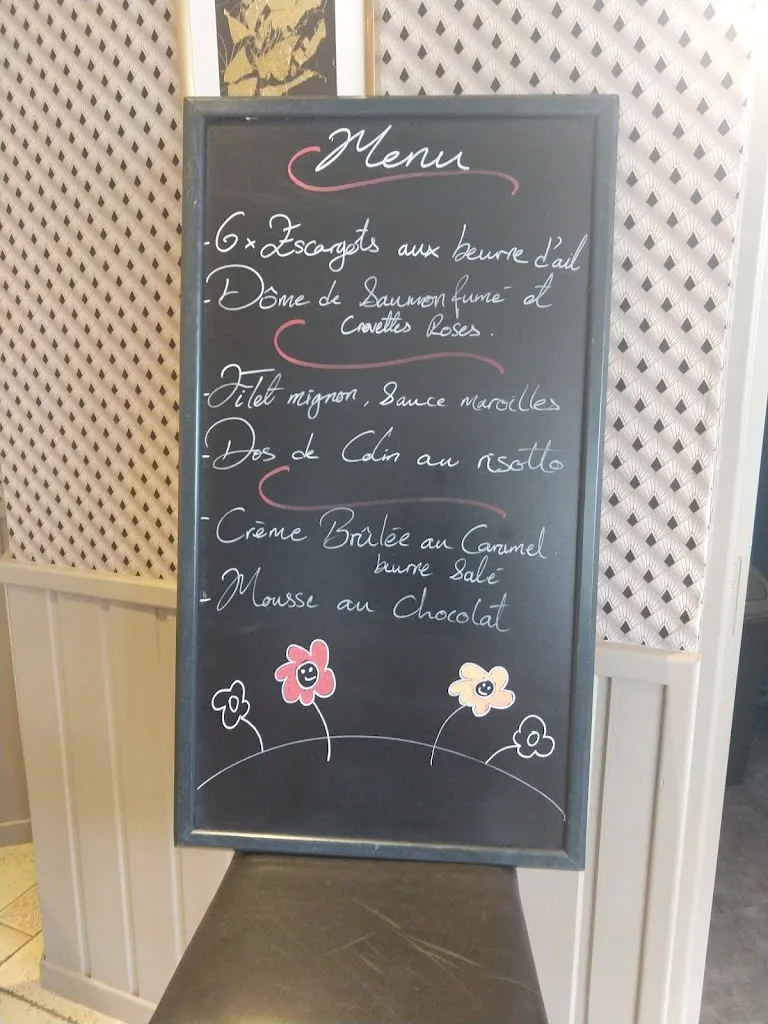 Menu
- 6x Escargots aux beurre d'ail
- Dôme de Saumon fumé et
Crevettes Roses.
- Filet mignon, Sauce maroilles
- Dos de Colin au risotto
- Crème Brûlée au Caramel
beurre Salé
- Mousse au Chocolat